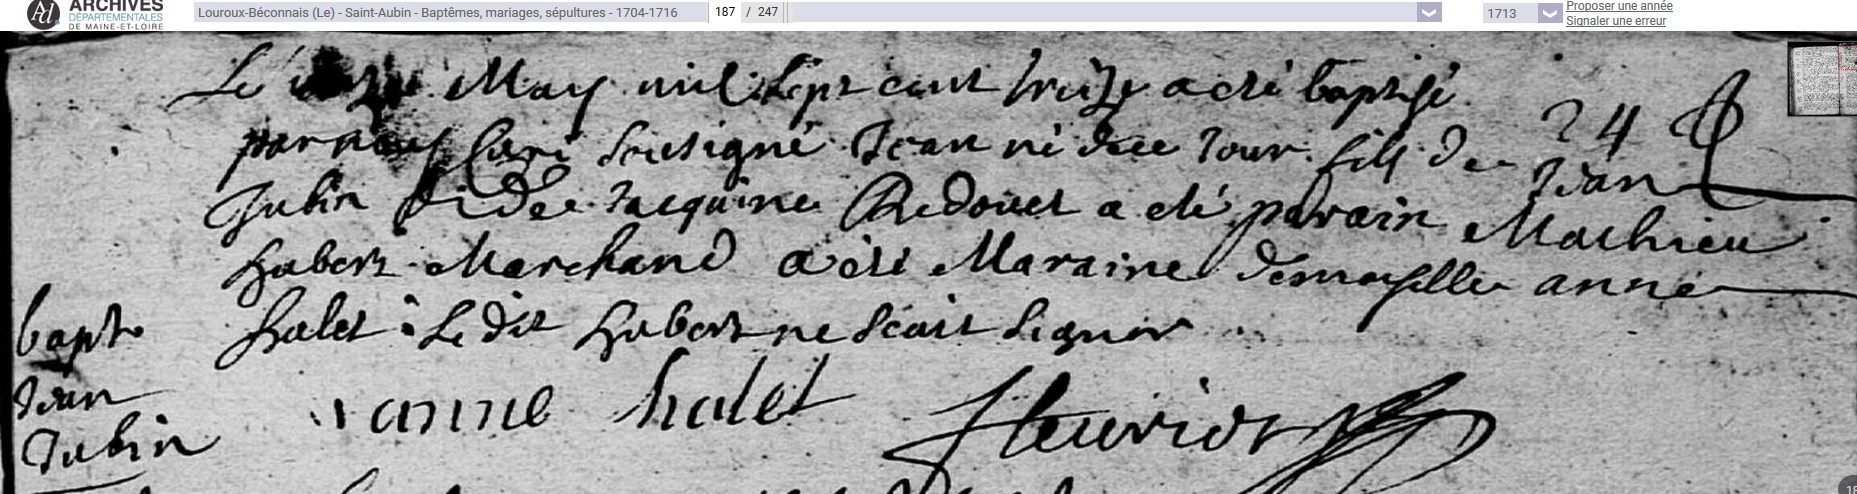 ARCHIVES
DÉPARTEMENTALES
DE MAINE-ET-LOIRE
Louroux-Béconnais (Le) - Saint-Aubin - Baptêmes, mariages, sépultures - 1704-1716
187 / 247
1713
Proposer une année
Signaler une erreur
Le May mil sept cent treize a eté baptisé
par nous Curé soussigné Jean né dece Jour fils de Jean
24
Jubin et de Jacquine Redouet a eté parain Mathieu
hubert Marchand a eté Maraine demoyselle anne
halet Le dit hubert ne sçait signer
bapt
Jean
Jubin
anne halet
fleuriot